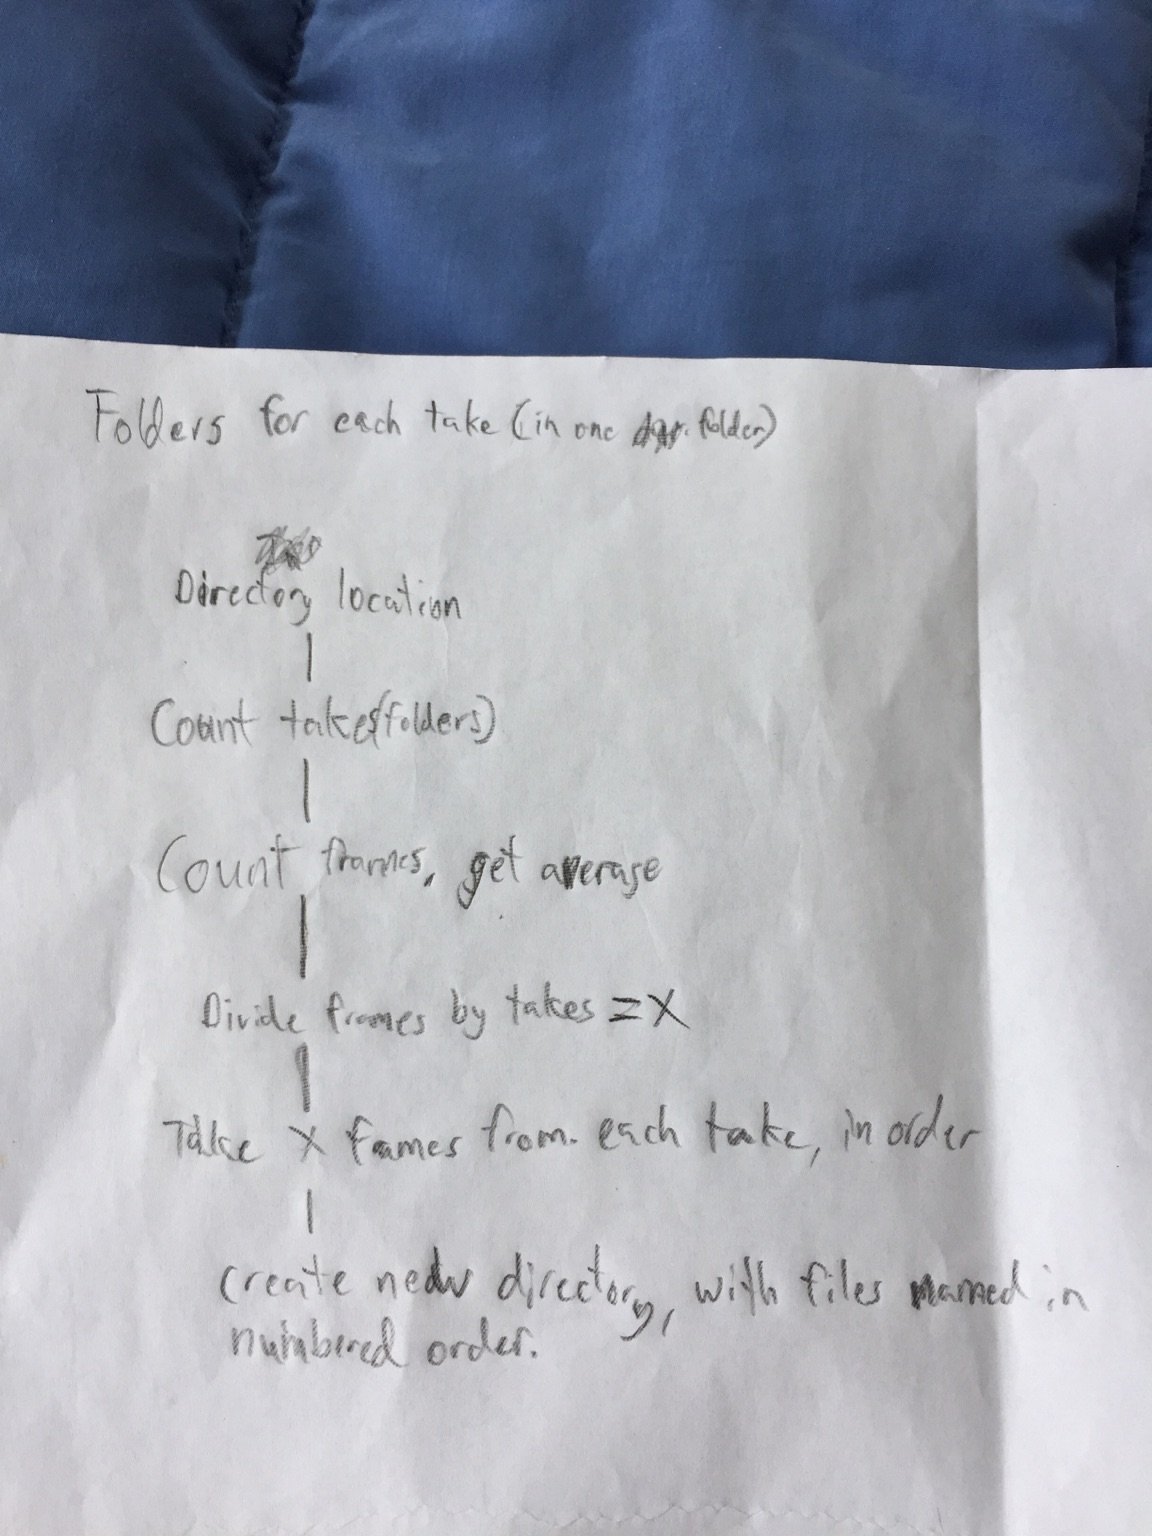 Folders for each take (in one folder)
Directory location
Count takes(folders)
Count frames, get average
Divide frames by takes = X
Take X frames from each take, in order
create new directory, with files named in
numbered order.